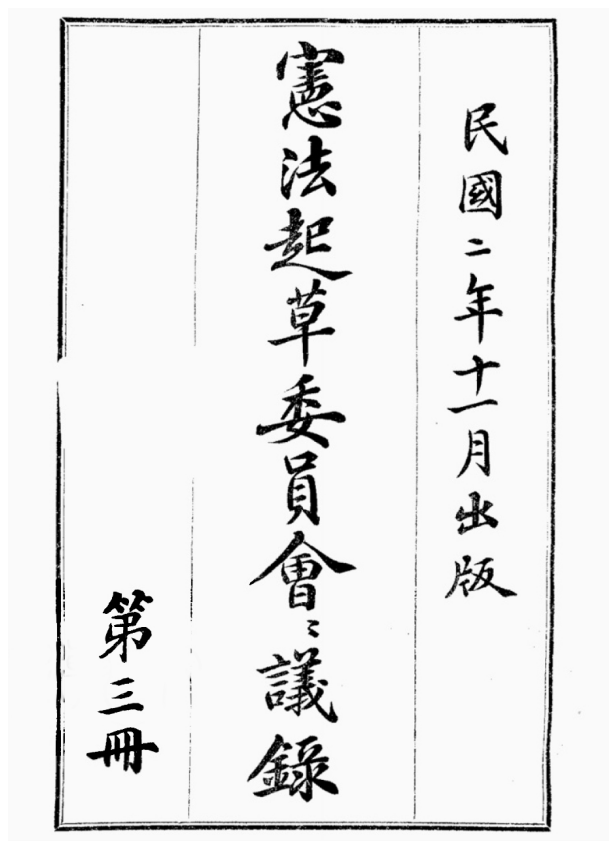 民國二年十一月出版
憲法起草委員會〻議錄
第三冊